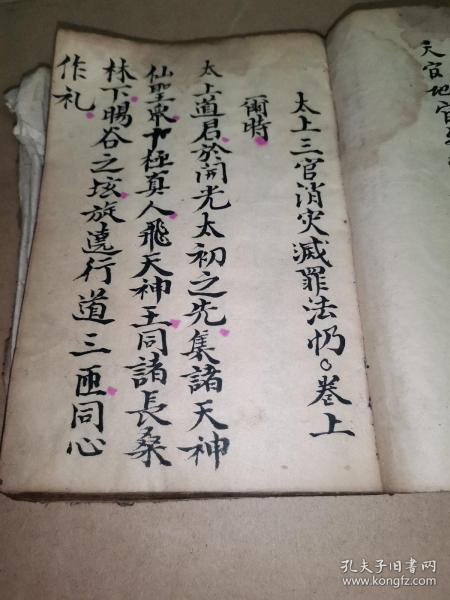 天官地官
太上三官消灾滅罪法忏。卷上
爾時
太上道君於開光太初之先集諸天神
仙聖眾十極真人飛天神王同諸長桑
林下暘谷之垓旋遶行道三匝同心
作礼
孔夫子旧书网
www.kongfz.com